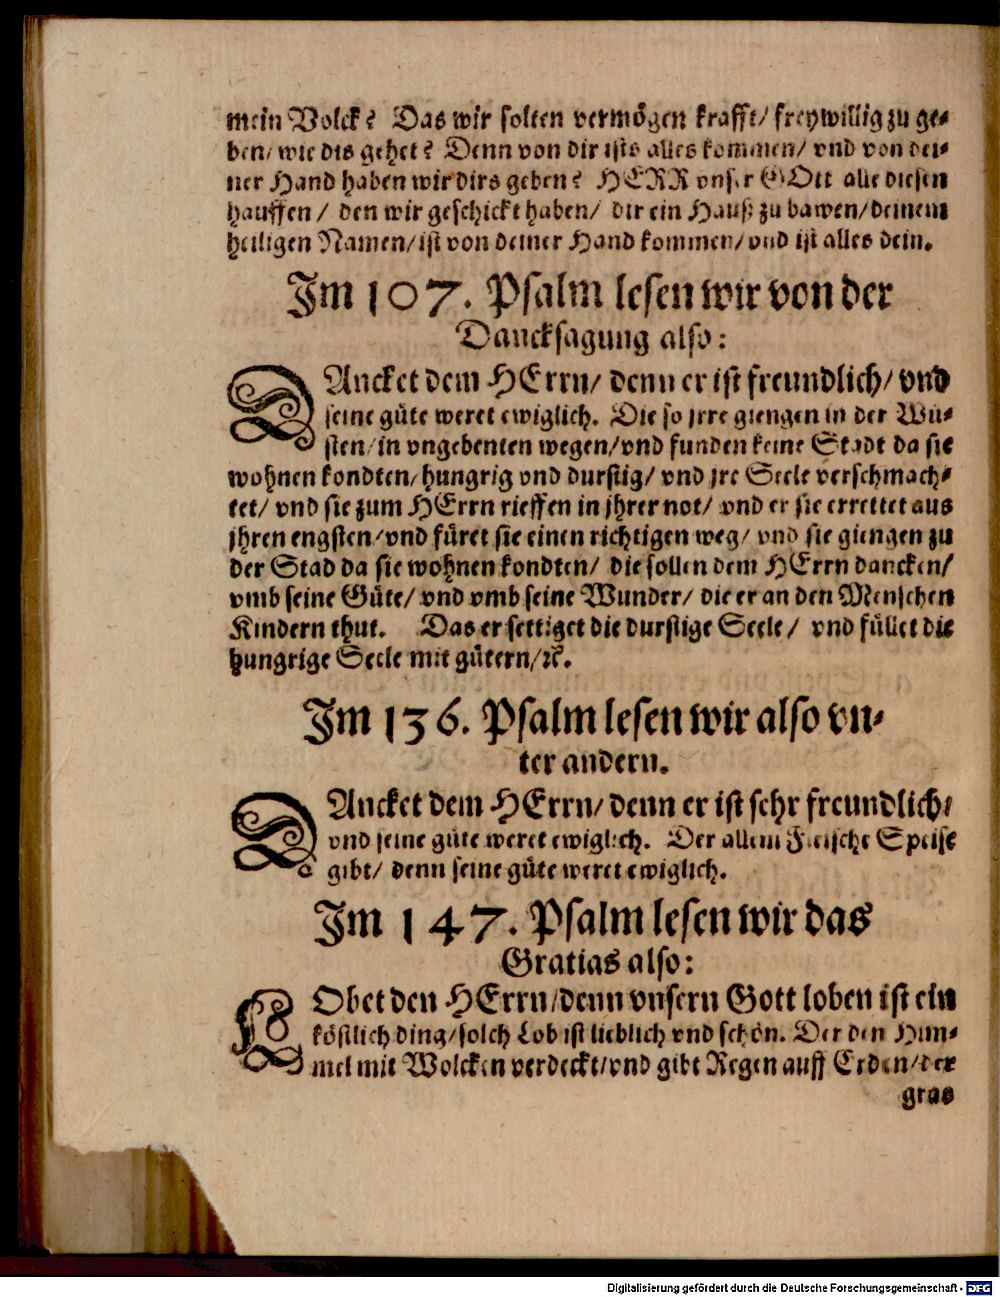 mein Volck? Das wir solten vermögen krafft/ freywillig zu ge-
ben/ wie dis gehet? Denn von dir ists alles kommen/ vnd von dei-
ner Hand haben wir dirs geben? HERR vnser GOtt alle diesen
hauffen/ den wir geschickt haben/ dir ein Hauß zu bawen/ deinem
heiligen Namen/ ist von deiner Hand kommen/ vnd ist alles dein.
Im 107. Psalm lesen wir von der
Dancksagung also:
DAncket dem HErrn/ denn er ist freundlich/ vnd
seine güte weret ewiglich. Die so jrre giengen in der Wü-
sten/ in vngebenten wegen/ vnd funden keine Stadt da sie
wohnen kondten/ hungrig vnd durstig/ vnd jre Seele verschmach-
tet/ vnd sie zum HErrn rieffen in jhrer not/ vnd er sie errettet aus
jhren engsten/ vnd füret sie einen richtigen weg/ vnd sie giengen zu
der Stad da sie wohnen kondten/ die sollen dem HErrn dancken/
vmb seine Güte/ vnd vmb seine Wunder/ die er an den Menschen
Kindern thut. Das er settiget die durstige Seele/ vnd füllet die
hungrige Seele mit gütern/ ꝛc.
Im 136. Psalm lesen wir also vn-
ter andern.
DAncket dem HErrn/ denn er ist sehr freundlich/
vnd seine güte weret ewiglich. Der allem Fleische Speise
gibt/ denn seine güte weret ewiglich.
Im 147. Psalm lesen wir das
Gratias also:
LObet den HErrn/ denn vnsern Gott loben ist ein
köstlich ding/ solch Lob ist lieblich vnd schön. Der den Him-
mel mit Wolcken verdeckt/ vnd gibt Regen auff Erden/ der
gras
Digitalisierung gefördert durch die Deutsche Forschungsgemeinschaft - DFG